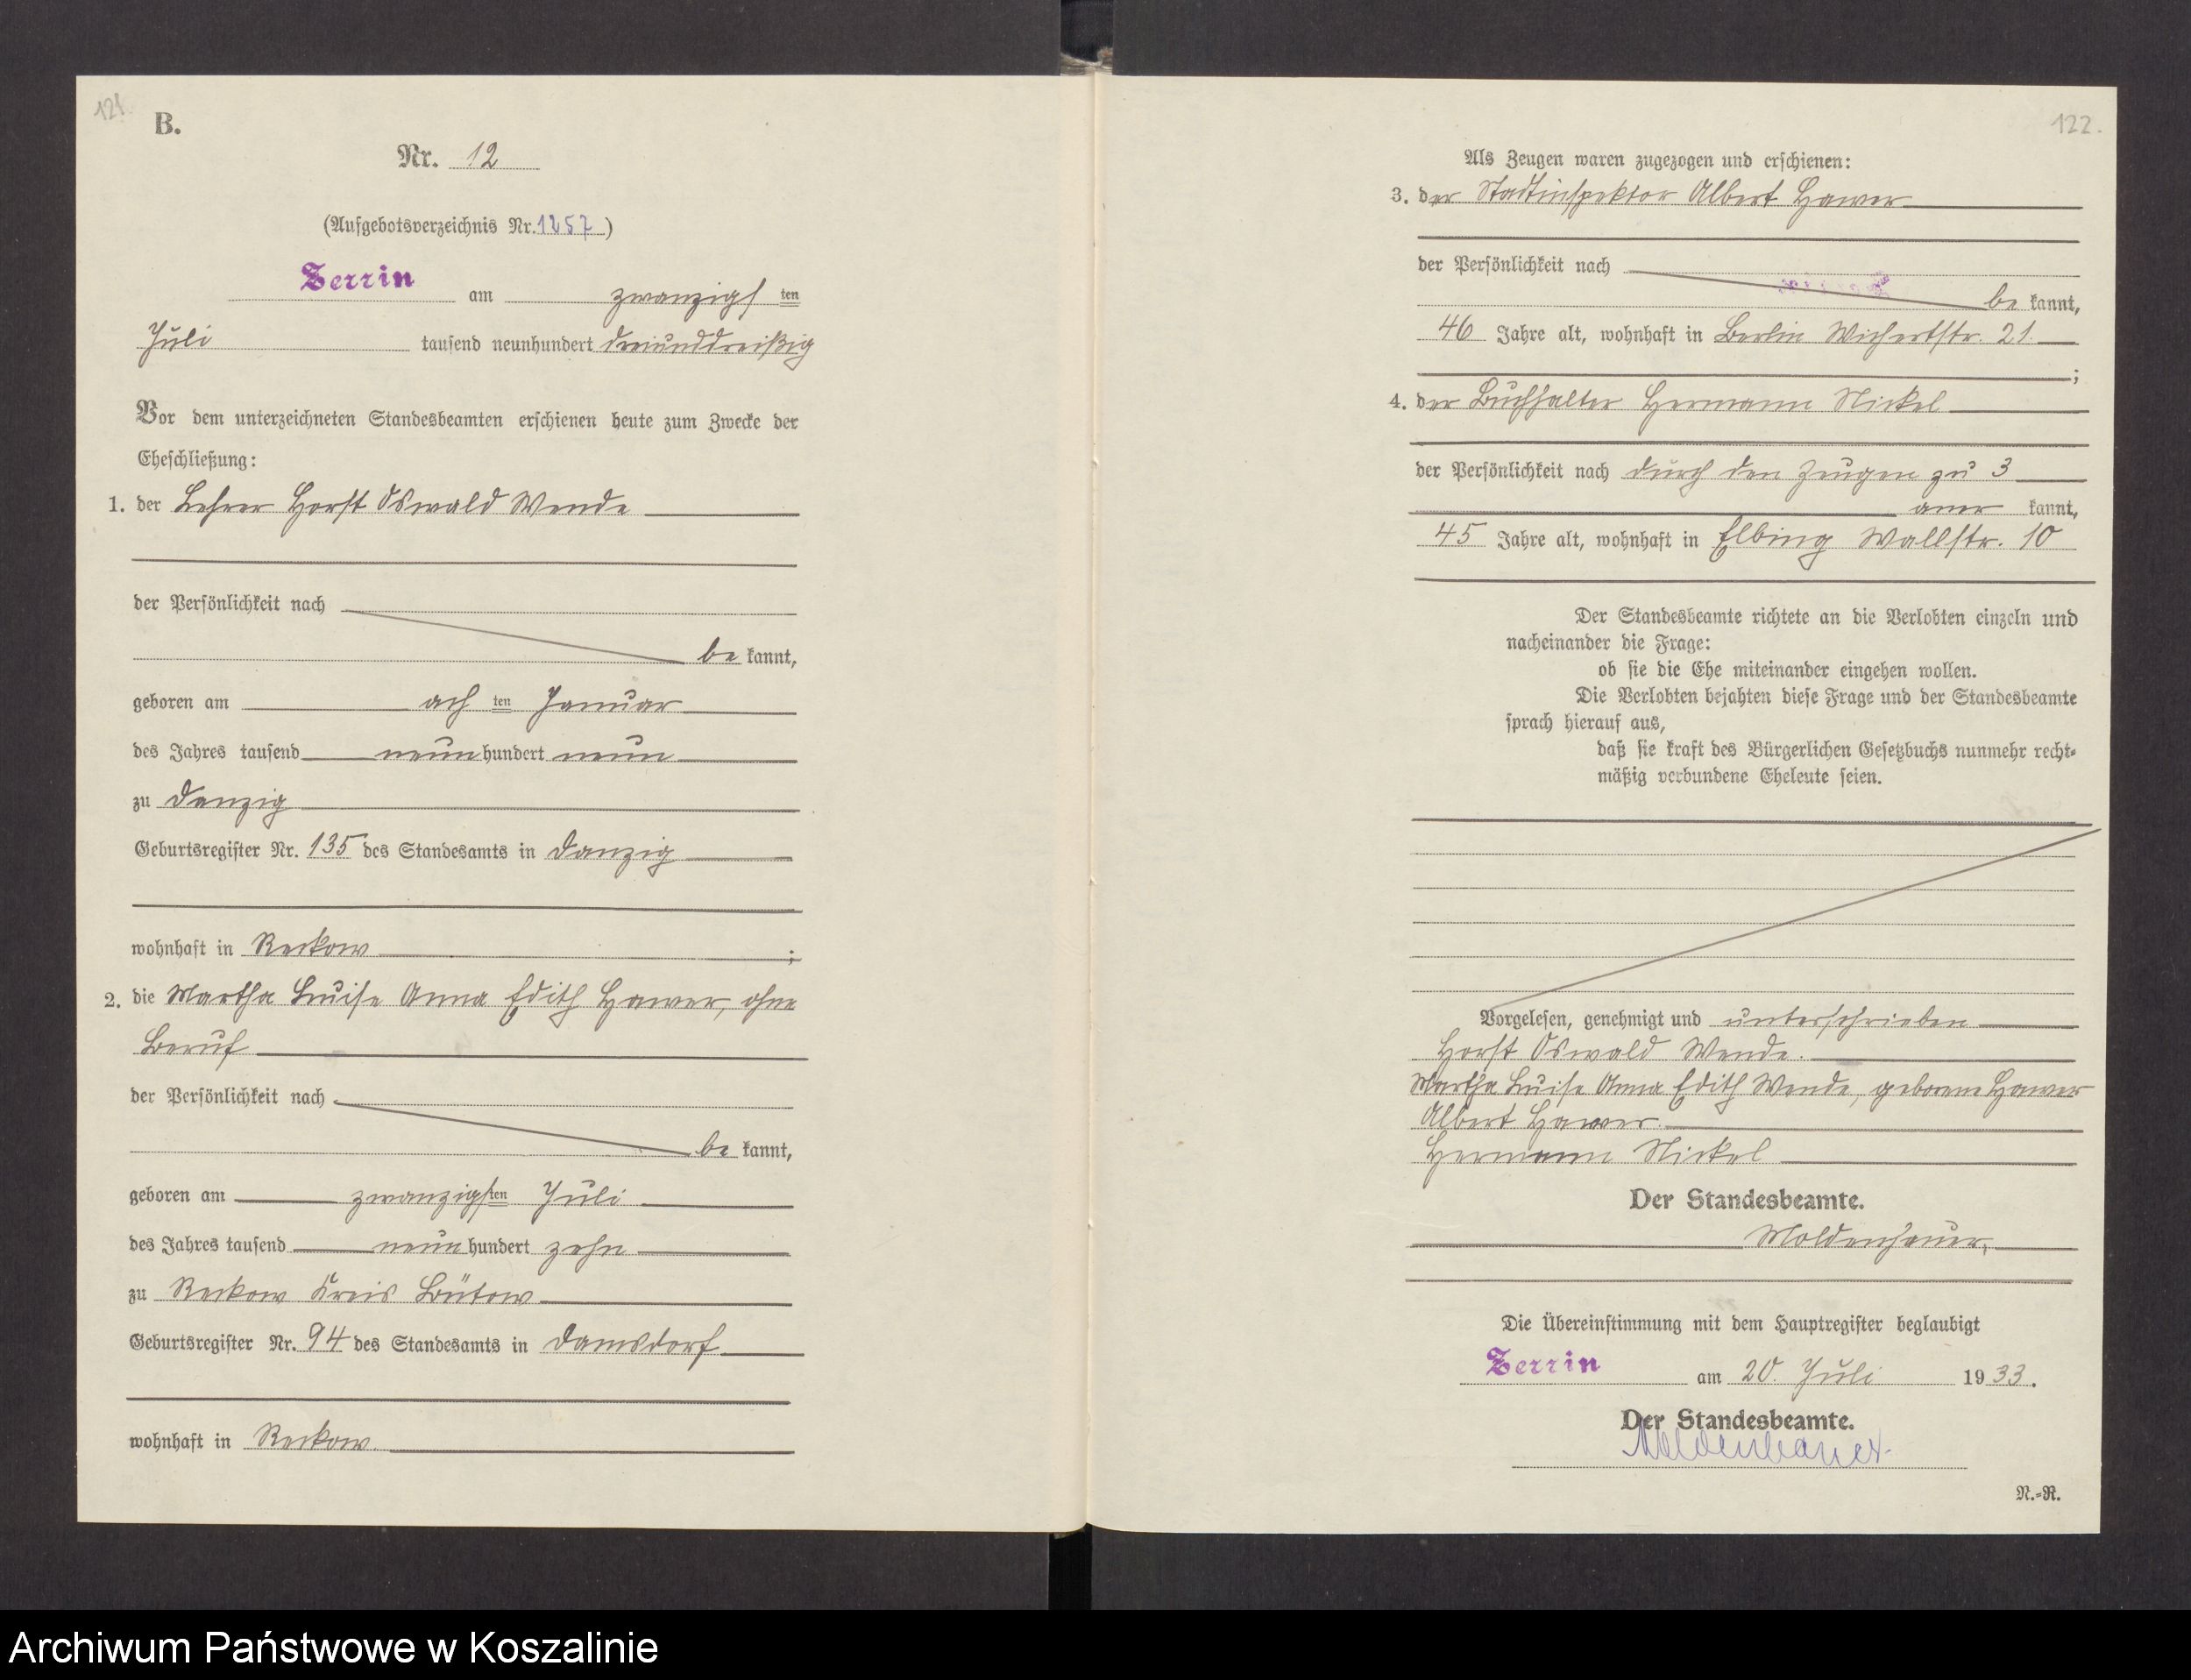 121.
B.
Nr. 12
(Aufgebotsverzeichnis Nr. 1257)
Zerrin am zwanzigsten
Juli tausend neunhundert dreiunddreißig
Vor dem unterzeichneten Standesbeamten erschienen heute zum Zwecke der
Eheschließung:
1. der Lehrer Horst Oswald Wende
der Persönlichkeit nach
be kannt,
geboren am achten Januar
des Jahres tausend neunhundert neun
zu Danzig
Geburtsregister Nr. 135 des Standesamts in Danzig
wohnhaft in Reckow ;
2. die Martha Luise Anna Edith Hawer, ohne
Beruf
der Persönlichkeit nach
be kannt,
geboren am zwanzigsten Juli
des Jahres tausend neunhundert zehn
zu Reckow Kreis Bütow
Geburtsregister Nr. 94 des Standesamts in Damsdorf
wohnhaft in Reckow
122.
Als Zeugen waren zugezogen und erschienen:
3. der Stadtinspektor Albert Hawer
der Persönlichkeit nach
be kannt,
46 Jahre alt, wohnhaft in Berlin Wichertstr. 21.
;
4. der Buchhalter Hermann Nickel
der Persönlichkeit nach durch den Zeugen zu 3
aner kannt,
45 Jahre alt, wohnhaft in Elbing Wallstr. 10
Der Standesbeamte richtete an die Verlobten einzeln und
nacheinander die Frage:
ob sie die Ehe miteinander eingehen wollen.
Die Verlobten bejahten diese Frage und der Standesbeamte
sprach hierauf aus,
daß sie kraft des Bürgerlichen Gesetzbuchs nunmehr recht-
mäßig verbundene Eheleute seien.
Vorgelesen, genehmigt und unterschrieben
Horst Oswald Wende.
Martha Luise Anna Edith Wende, geborene Hawer
Albert Hawer.
Hermann Nickel
Der Standesbeamte.
Moldenhauer,
Die Übereinstimmung mit dem Hauptregister beglaubigt
Zerrin am 20. Juli 1933.
Der Standesbeamte.
Moldenhauer
N.-R.
Archiwum Państwowe w Koszalinie